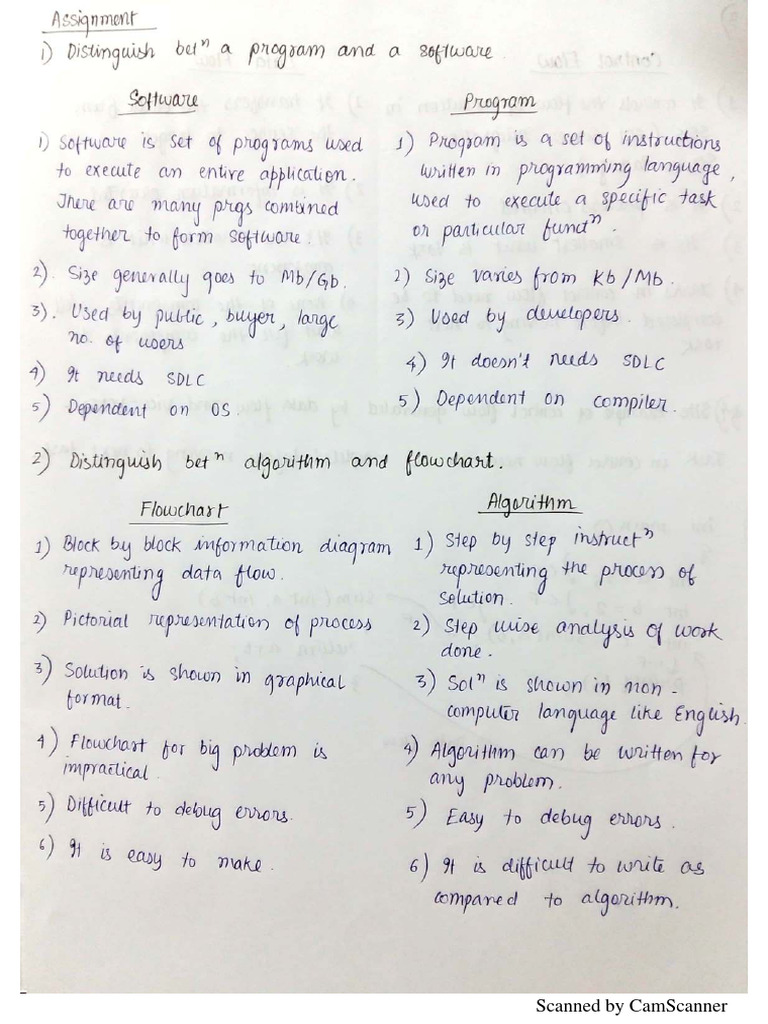 Assignment
1) Distinguish betⁿ a program and a software.
Software
1) Software is set of programs used
to execute an entire application.
There are many prgs combined
together to form software.
2). Size generally goes to Mb/Gb.
3). Used by public, buyer, large
no. of users
4) It needs SDLC
5) Dependent on OS.
Program
1) Program is a set of instructions
written in programming language,
used to execute a specific task
or particular functⁿ.
2) Size varies from Kb/Mb.
3) Used by developers.
4) It doesn't needs SDLC
5) Dependent on compiler.
2) Distinguish betⁿ algorithm and flowchart.
Flowchart
1) Block by block information diagram
representing data flow.
2) Pictorial representation of process
3) Solution is shown in graphical
format.
4) Flowchart for big problem is
impractical.
5) Difficult to debug errors.
6) It is easy to make.
Algorithm
1) Step by step instructⁿ
representing the process of
solution.
2) Step wise analysis of work
done.
3) Solⁿ is shown in non-
computer language like English.
4) Algorithm can be written for
any problem.
5) Easy to debug errors.
6) It is difficult to write as
compared to algorithm.
Scanned by CamScanner